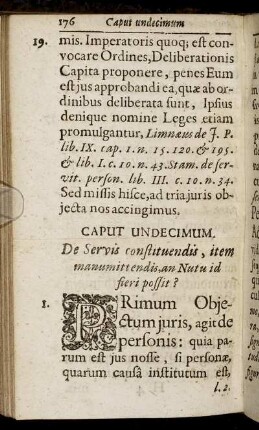 176 Caput undecimum
19. mis. Imperatoris quoq; est con-
vocare Ordines, Deliberationis
Capita proponere, penes Eum
est jus approbandi ea, quæ ab or-
dinibus deliberata sunt, Ipsius
denique nomine Leges etiam
promulgantur, Limnæus de J. P.
lib. IX. cap. 1. n. 15. 120. & 195.
& lib. I. c. 10. n. 43. Stam. de ser-
vit. person. lib. III. c. 10. n. 34.
Sed missis hisce, ad tria juris ob-
jecta nos accingimus.
CAPUT UNDECIMUM.
De Servis constituendis, item
manumittendis, an Nutu id
fieri possit?
1. PRimum Obje-
ctum juris, agit de
personis: quia pa-
rum est jus nosse, si personæ,
quarum causâ institutum est,
l. 2.